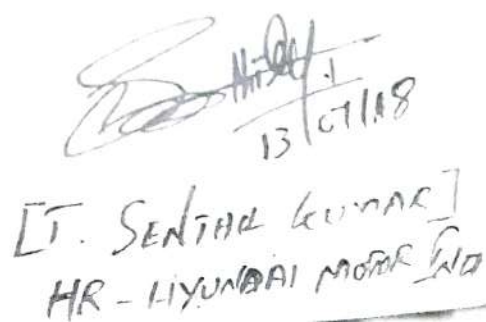 13/07/18
[T. SENTHIL KUMAR]
HR - HYUNDAI MOTOR IND